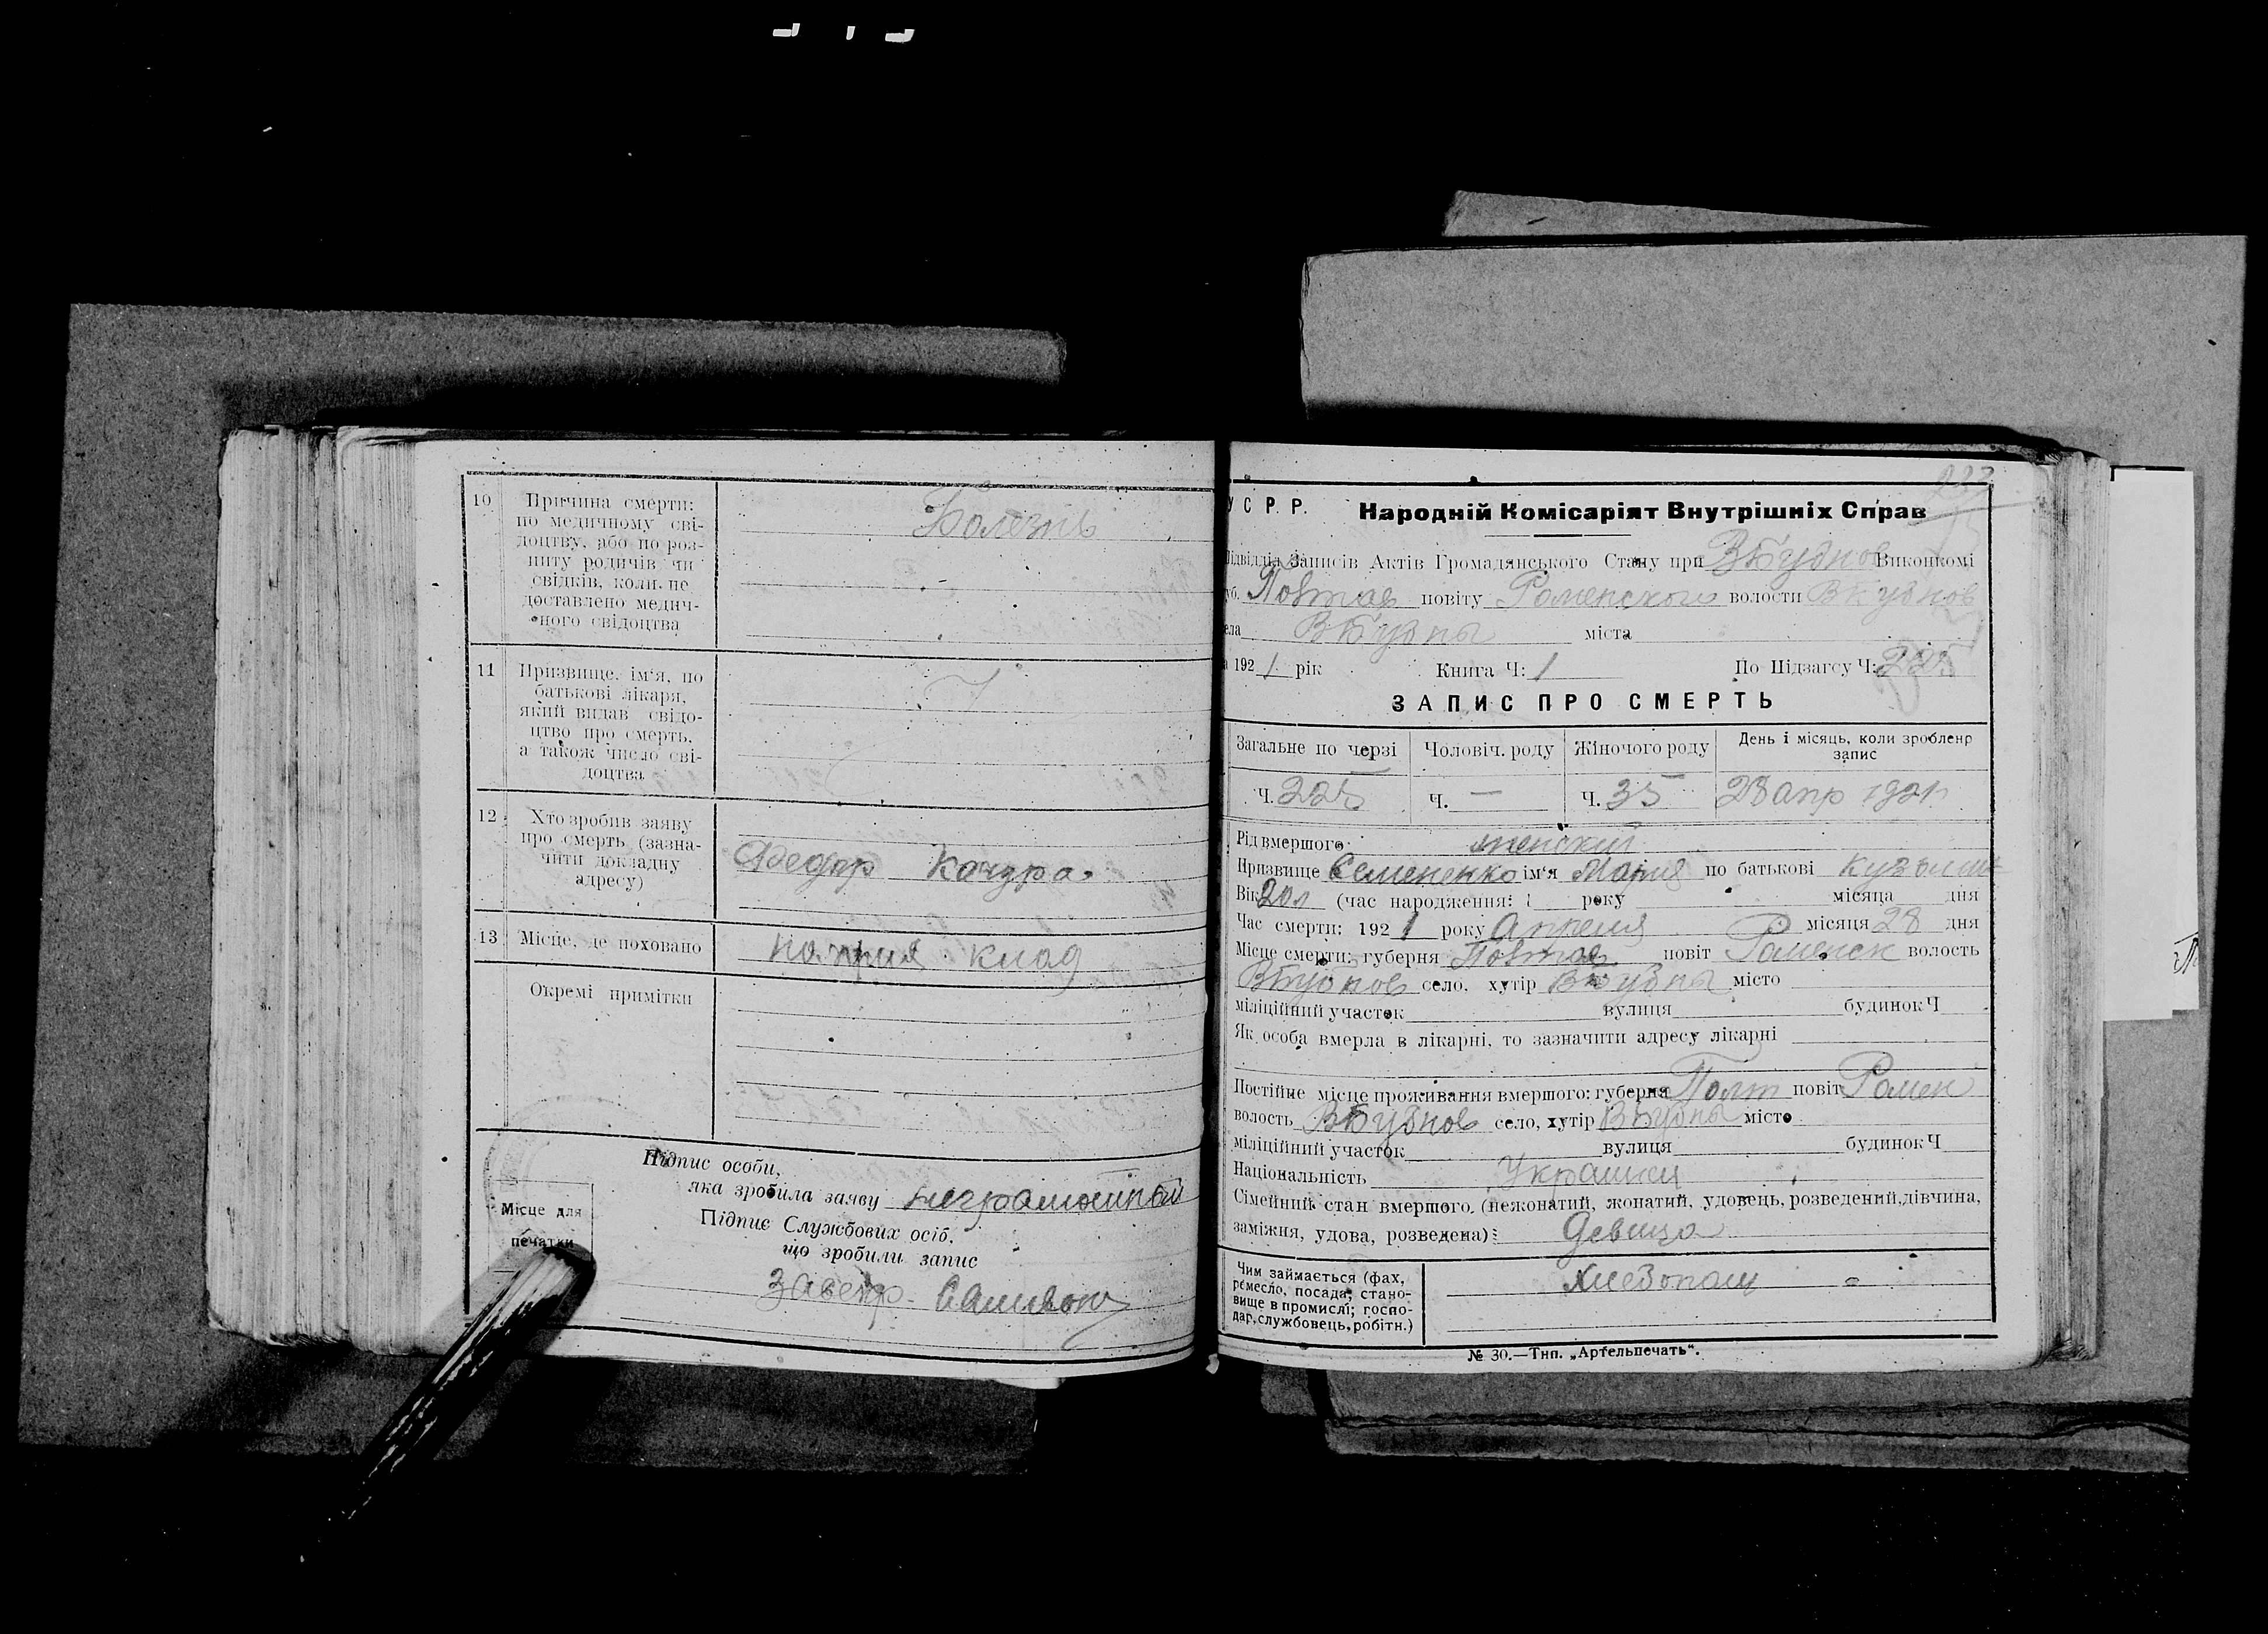 10 Причина смерти:
по медичному сві-
доцтву, або по роз-
питу родичів чи
свідків, коли не
доставлено медич-
ного свідоцтва
Болезнь
11 Призвище, ім'я, по
батькові лікаря,
який видав свідо-
цтво про смерть,
а також число сві-
доцтва
12 Хто зробив заяву
про смерть (зазна-
чити докладну
адресу)
Федор Качура
13 Місце, де поховано
клад
Окремі примітки
Підпис особи,
яка зробила заяву неграмотный
Підпис Службових осіб,
що зробили запис
Місце для
печатки
У С Р. Р. Народній Комісаріят Внутрішніх Справ
Підвідділ Записів Актів Громадянського Стану при ВБубнов Виконкомі
губ. Полтав повіту Роменского волости ВБубнов
села ВБубны міста
а 1921 рік Книга Ч: 1 По Підзагсу Ч: 225
ЗАПИС ПРО СМЕРТЬ
Загальне по черзі Чоловіч. роду Жіночого роду День і місяць, коли зроблено
запис
Ч. 225 Ч. — Ч. 35 28 апр 1921
Рід вмершого женский
Призвище Семененко ім'я Мария по батькові Кузьм
Вік 20 л (час народження: року місяця дня
Час смерти: 1921 року Апреля місяця 28 дня
Місце смерти: губерня Полтав повіт Роменск волость
ВБубнов село, хутір ВБубны місто
міліційний участок вулиця будинок Ч
Як особа вмерла в лікарні, то зазначити адресу лікарні
Постійне місце проживання вмершого: губерня Полт повіт Ромен
волость ВБубнов село, хутір ВБубны місто
міліційний участок вулиця будинок Ч
Національність Украинец
Сімейний стан вмершого (нежонатий, жонатий, удовець, розведений, дівчина,
заміжня, удова, розведена): Девица
Чим займається (фах,
ремесло, посада, стано-
вище в промислі; госпо-
дар, службовець, робітн.)
Хлебопаш
№ 30.—Тип. „Артельпечать“.